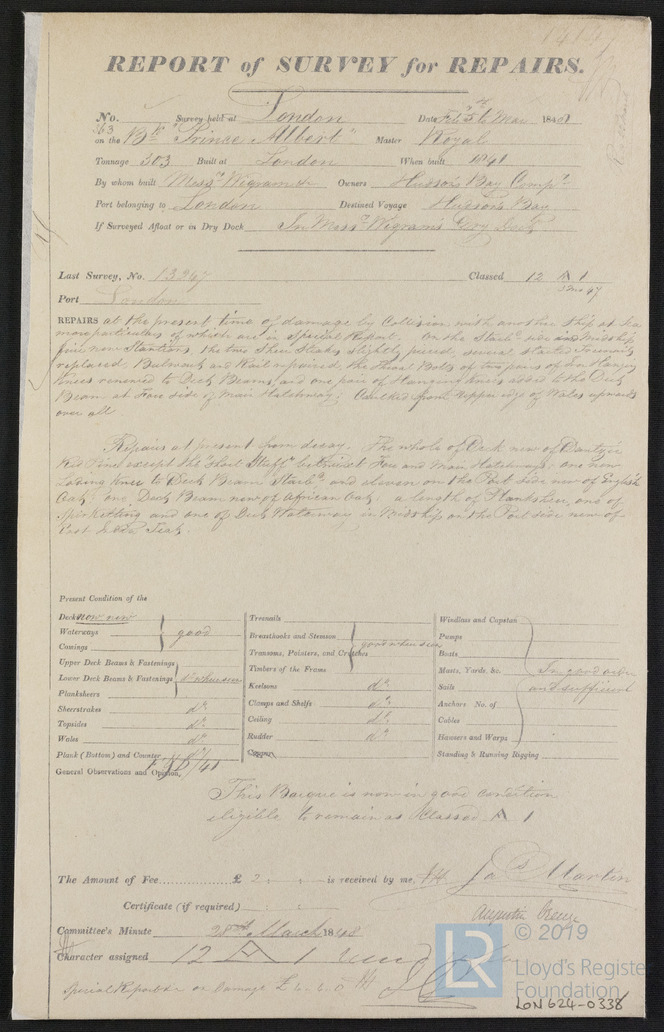 14147
REPORT of SURVEY for REPAIRS.
No. Survey held at London Date Feby 5 to Mar 1848
363 on the Bk "Prince Albert" Master Royal
Tonnage 303 Built at London When built 1841
By whom built Messrs Wigram & Owners Hudson's Bay Compy
Port belonging to London Destined Voyage Hudson's Bay
If Surveyed Afloat or in Dry Dock In Messrs Wigrams Dry Dock
Last Survey, No. 13297 Classed 12 A 1
Port London
REPAIRS at the present time of damage by Collision with another Ship at Sea
more particulars of which are in Special Report. On the Starbd side Midship
five new Stantions, the two Sheer Strakes slightly pieced, several started Treenails
replaced, Bulwark and Rail repaired, the Throat Bolts of two pairs of Iron Hanging
Knees renewed to Deck Beams, and one pair of Hanging knees added to the Deck
Beam at Fore side of Main Hatchway; Caulked from upper edge of Wales upwards
over all.
Repairs at present from decay. The whole of Deck new of Dantzic
Red Pine except the "Short Stuff" betwixt Fore and Main Hatchways; one new
Lodging knee to Deck Beam Starbd, and eleven on the Port side new of English
Oak; one Deck Beam new of African Oak; a length of Planksheer, one of
Spirketting and one of Deck Waterway in Midship on the Port side new of
East India Teak.
Present Condition of the
Deck now new
Waterways good
Comings
Upper Deck Beams & Fastenings
Lower Deck Beams & Fastenings do when seen
Planksheers
Sheerstrakes do
Topsides do
Wales do
Plank (Bottom) and Counter do
Treenails
Breasthooks and Stemson good when seen
Transoms, Pointers, and Crutches
Timbers of the Frame
Keelsons do
Clamps and Shelfs do
Ceiling do
Rudder do
Copper
Windlass and Capstan
Pumps
Boats
Masts, Yards, &c. In good order
Sails and sufficient
Anchors No. of
Cables
Hawsers and Warps
Standing & Running Rigging
General Observations and Opinion,
This Barque is now in good condition
eligible to remain as Classed A 1
The Amount of Fee £ 2 is received by me, Jas Martin
Certificate (if required)
Augustin Creuze
Committee's Minute 28th March 1848
Character assigned 12 A 1
Special Report on Damage £
LR
© 2019
Lloyd's Register
Foundation
LON 624-0338